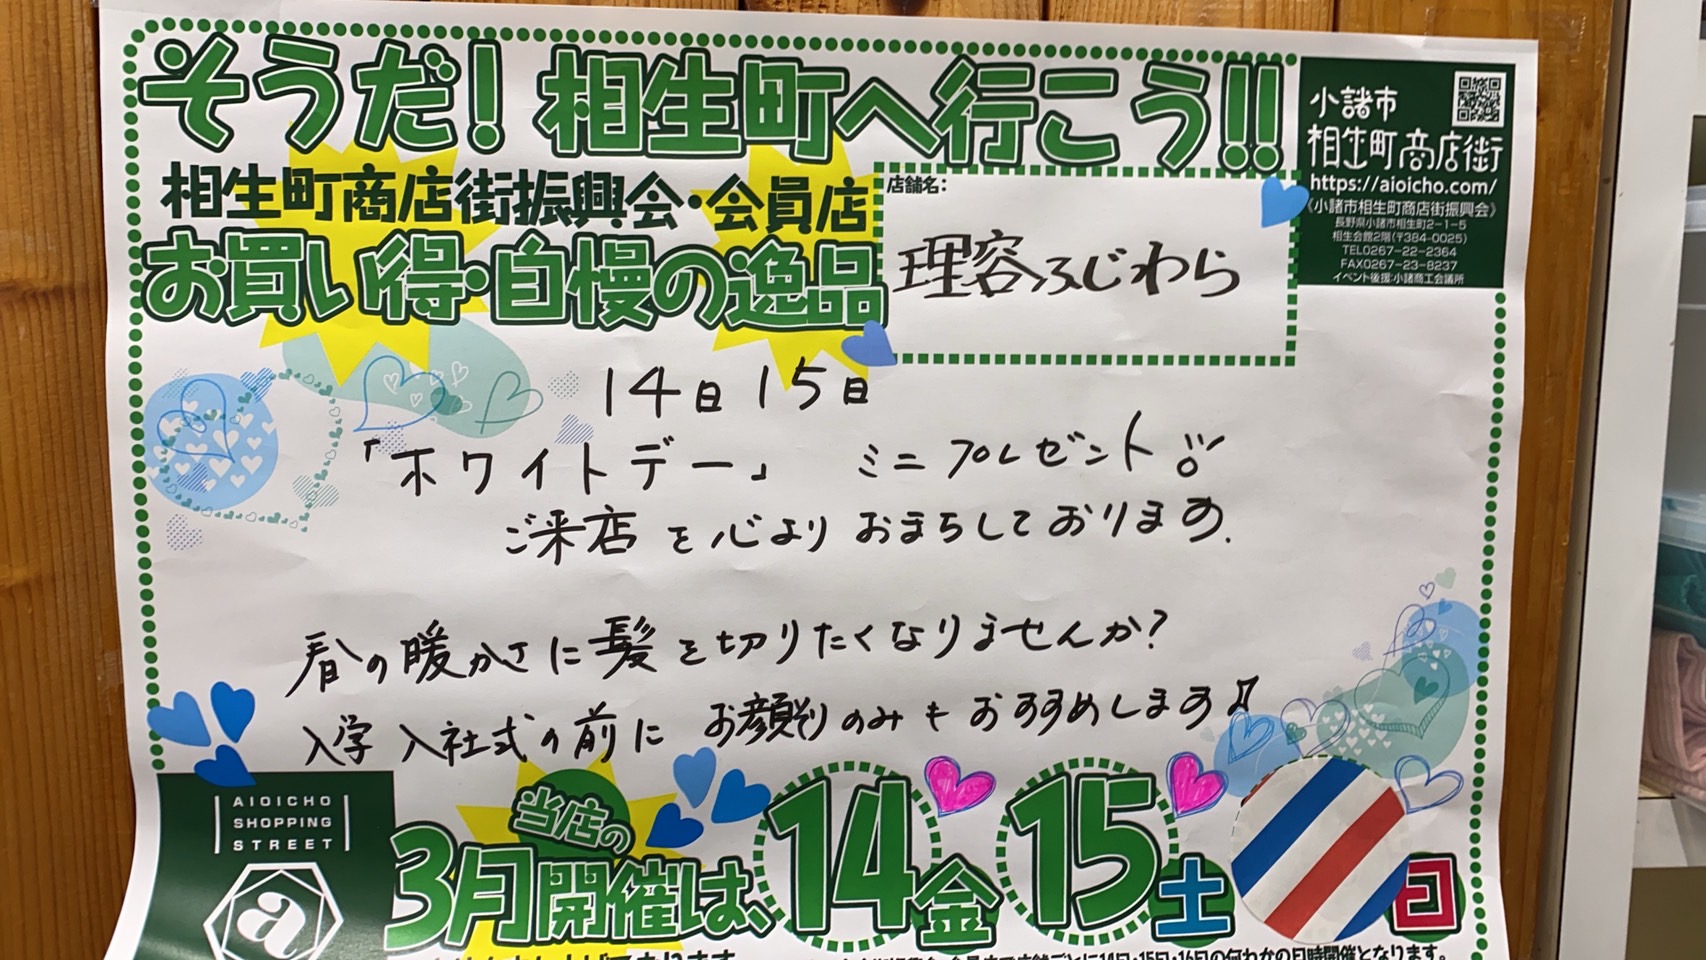 そうだ!相生町へ行こう!!
相生町商店街振興会・会員店
お買い得・自慢の逸品
店舗名:
理容ふじわら
小諸市
相生町商店街
https://aioicho.com/
《小諸市相生町商店街振興会》
長野県小諸市相生町2-1-5
相生会館2階(〒384-0025)
TEL0267-22-2364
FAX0267-23-8237
イベント後援:小諸商工会議所
14日15日
「ホワイトデー」 ミニプレゼント
ご来店を心よりおまちしております.
春の暖かさに髪を切りたくなりませんか?
入学入社式の前にお顔剃りのみもおすすめします♫
AIOICHO
SHOPPING
STREET
a
当店の
3月開催は、14金15土日